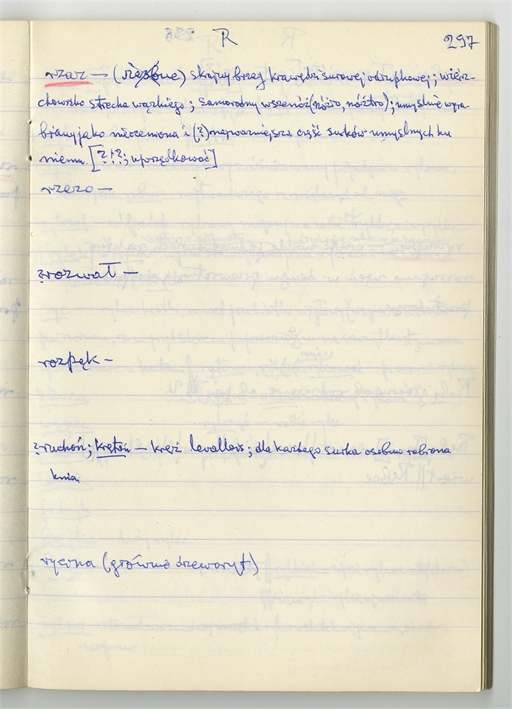 R 297
rzaz — (rzeźbne) skrajny brzeg krawędzi surowej odłupkowej; wierz-
chowisko strecha wązkiego; samorodny wszenóż (nóżto, nóżtro); umyślnie wyra-
biany jako nieoceniona i (?) najważniejsza część surków umyślnych ku
niemu. [?!?; uporządkować]
rzezo —
?rozwał —
rozpęk —
?ruchoń; krętoń — kręż levallois; dla każdego surka osobno robiona
rycina (głównie drzeworyt)